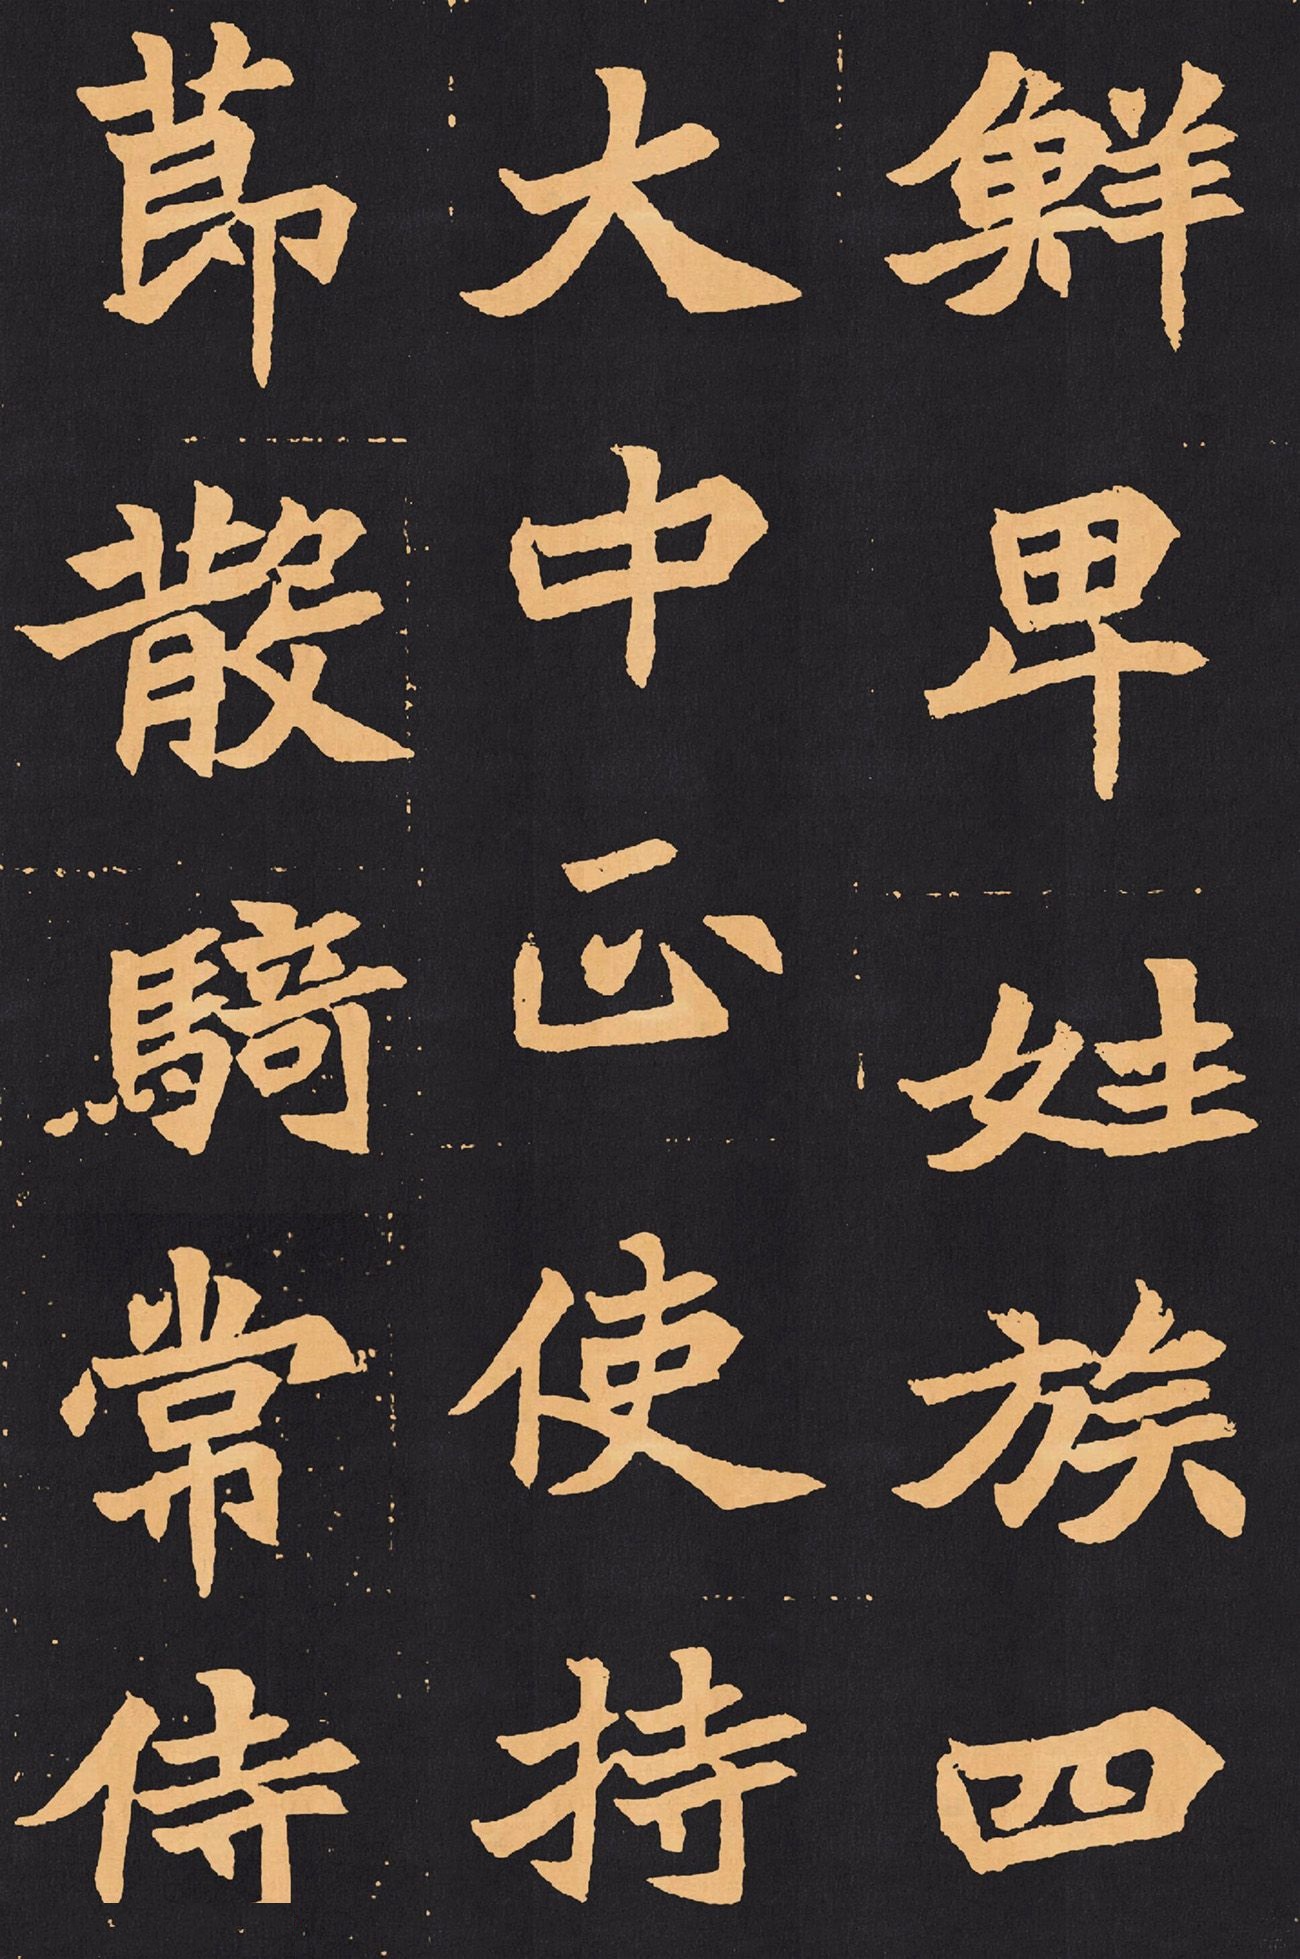 鮮卑姓族四
大中正使持
莭散騎常侍